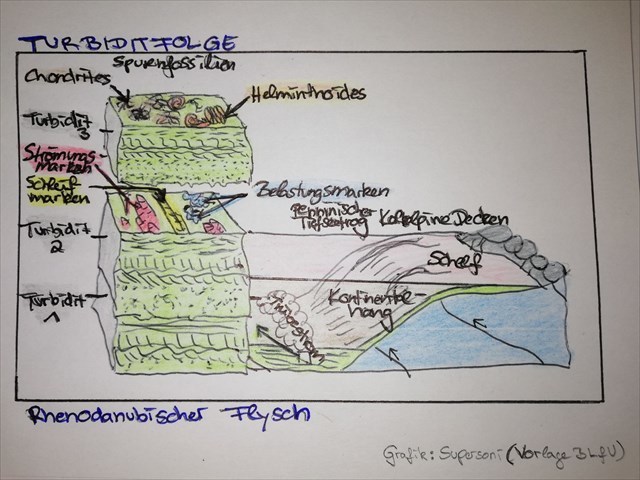 TURBIDITFOLGE
Spurenfossilien
Chondrites
Helminthoides
Turbidit
3
Strömungs-
marken
Schleif
marken
Belastungsmarken
Penninischer
Tiefseetrog
Kalkalpine Decken
Turbidit
2
Schelf
Turbidit
1
Kontinental
hang
Rhenodanubischer Flysch
Grafik: Supersoni (Vorlage 3 LfU)